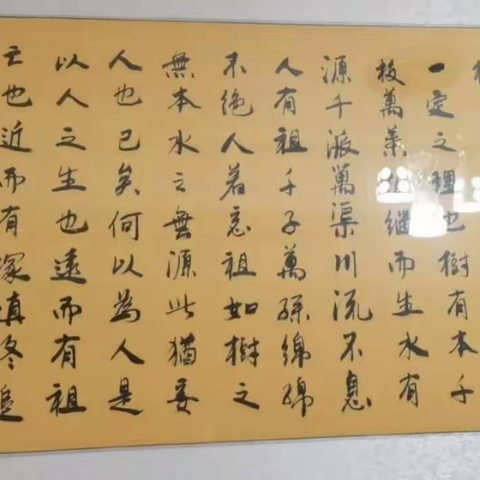 一定之理也樹有本千
枝萬葉繼而生水有
源千派萬渠川流不息
人有祖千子萬孫綿綿
不絕人若忘祖如樹之
無本水之無源此猶妄
人也已矣何以為人是
以人之生也遠而有祖
亡也近而有塚慎終追